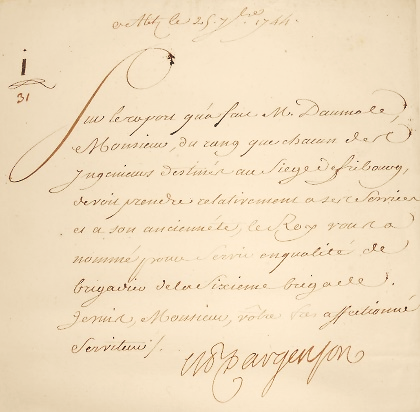 a Metz le 25. 7bre 1744.
i
31
Sur le raport qu'a fait M. Daumale,
Monsieur, du rang que chacun des
Ingenieurs destinés au Siege de fribourg,
devoit prendre relativement a ses Services
et a son ancienneté, le Roy vous a
nommé pour Servir en qualité de
brigadier de la Sixieme brigade.
Je suis, Monsieur, vôtre tres affectionné
Serviteur/.
M Dargenson